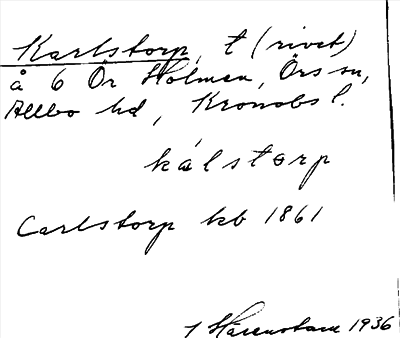 Karlstorp, t (rivet)
å 6 Ör Holmen, Örs sn,
Allbo hd, Kronobs l.
kálstorp
Carlstorp kb 1861
1 Hårenstam 1936